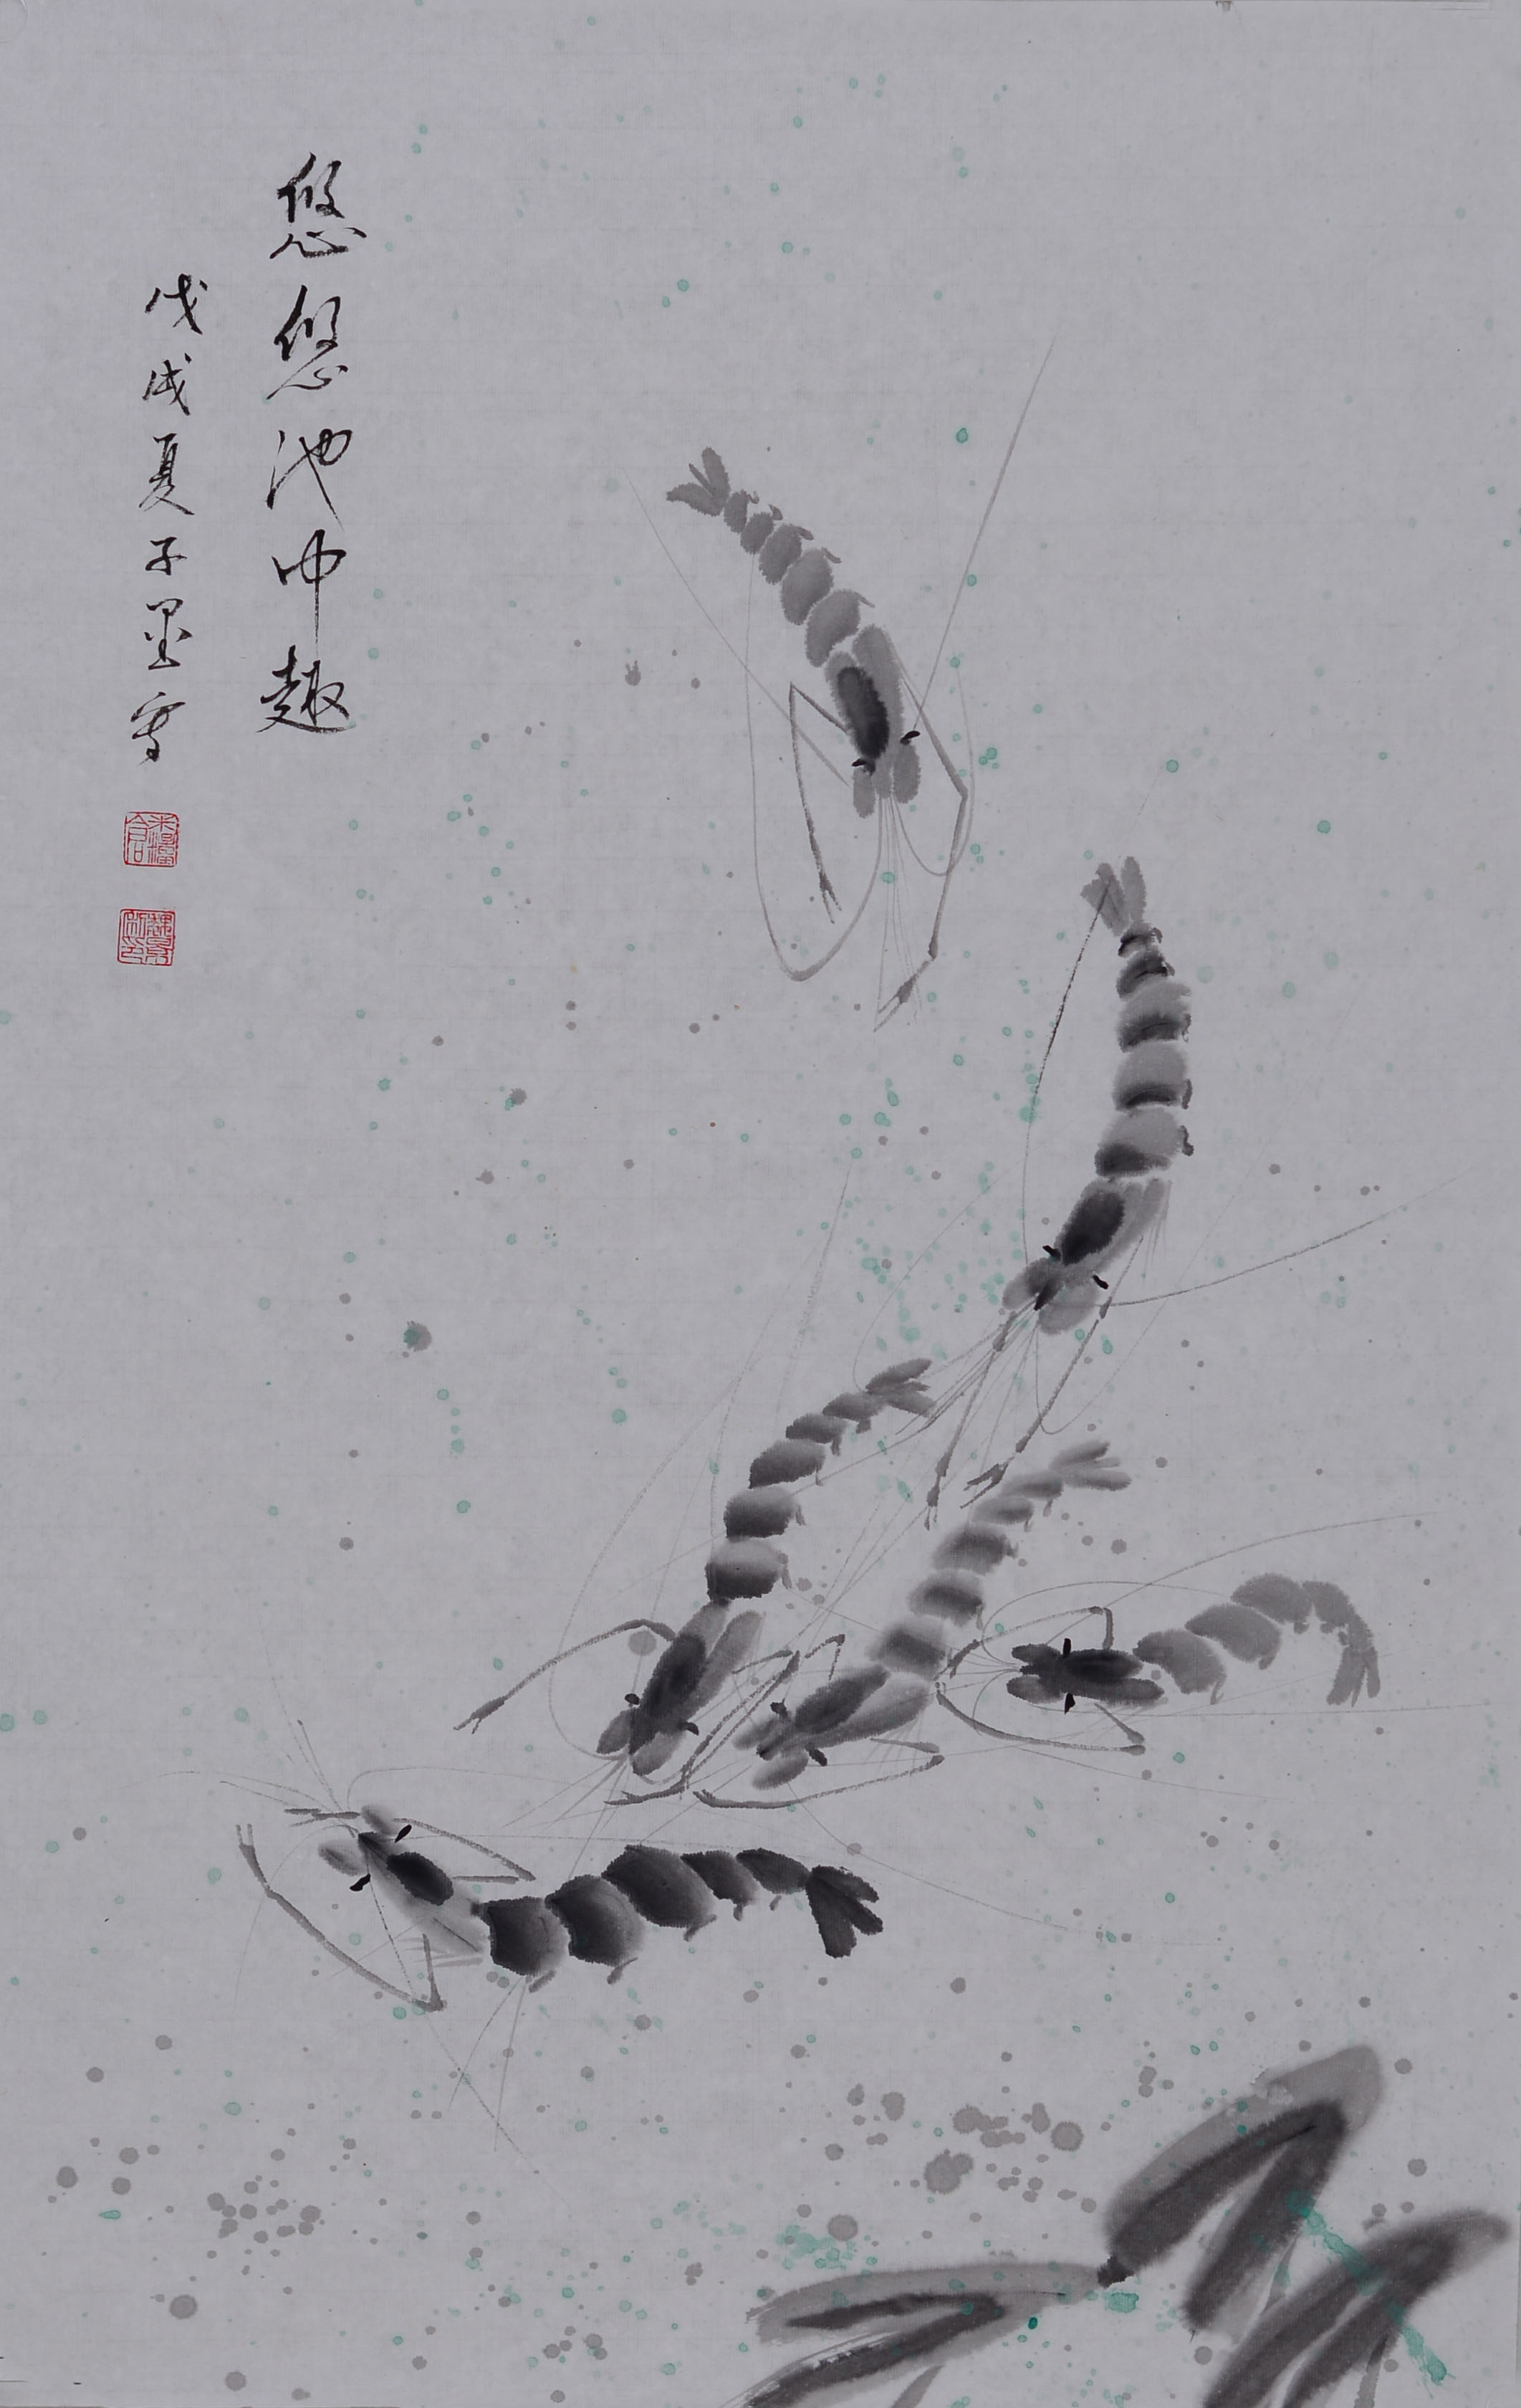 悠悠池中趣
戊戌夏子墨雪